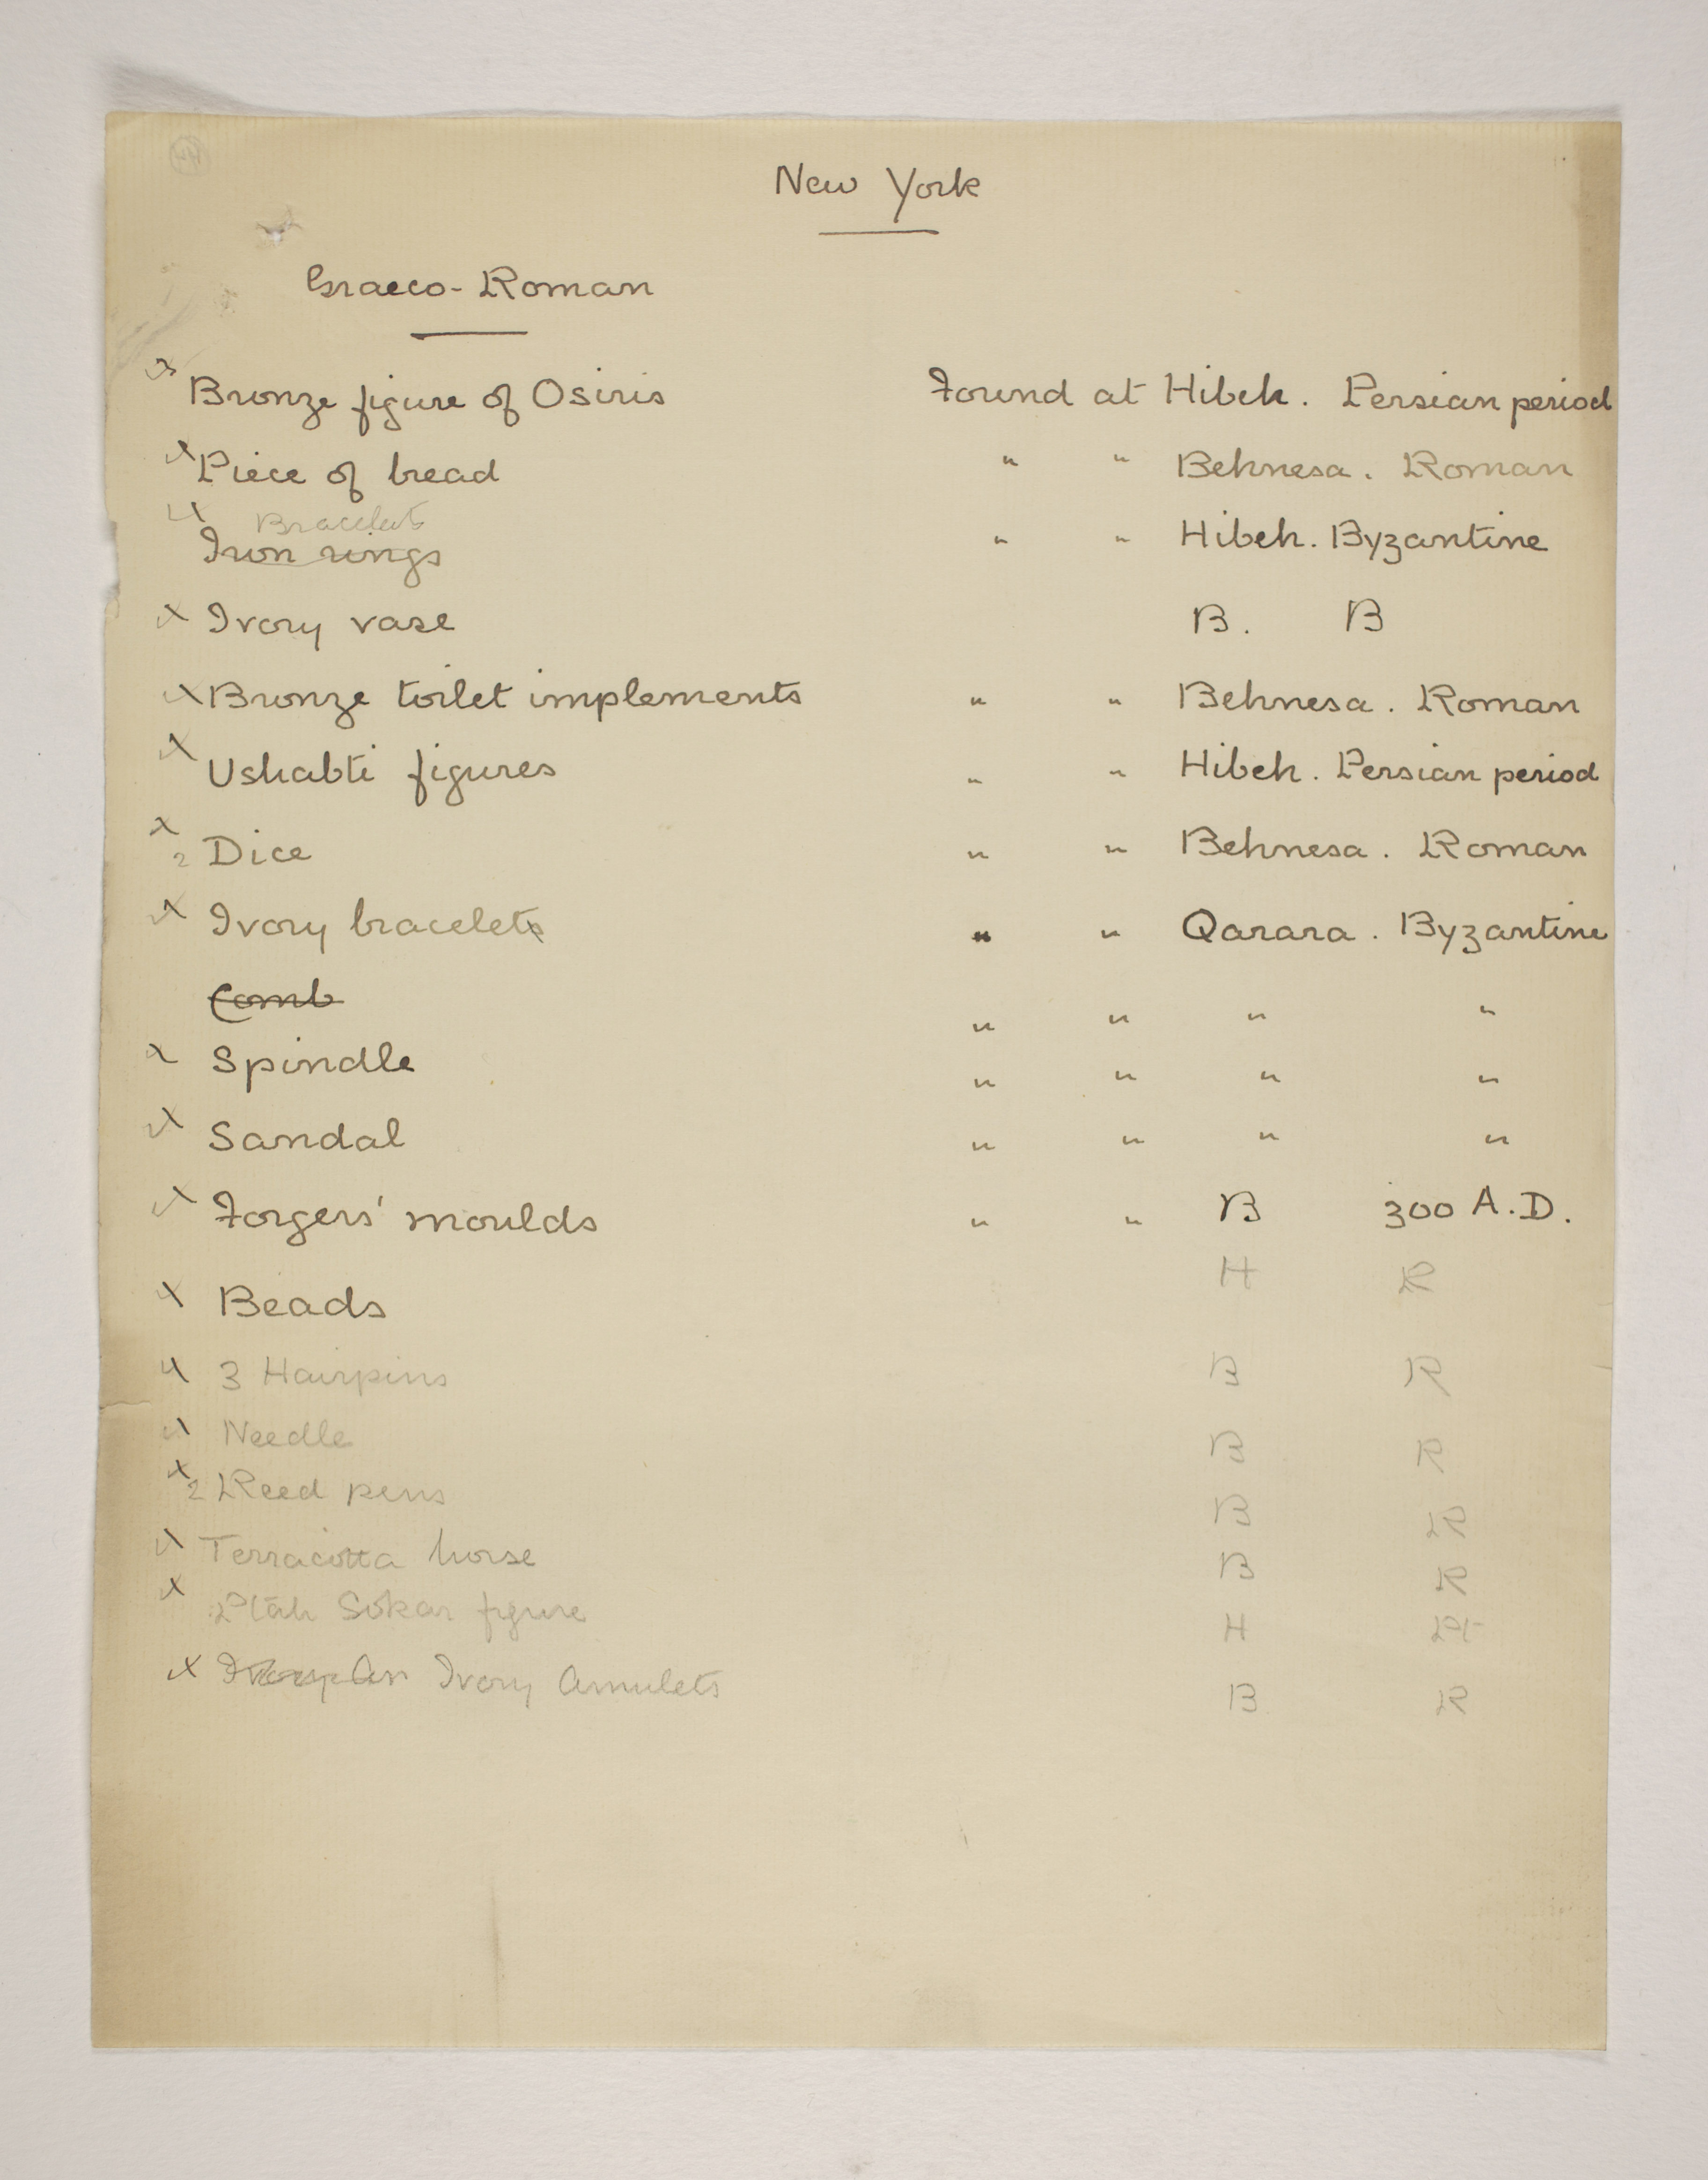 New York
Graeco-Roman
x Bronze figure of Osiris Found at Hibeh. Persian period
x Piece of bread " " Behnesa. Roman
x Bracelets
Iron rings " " Hibeh. Byzantine
x Ivory vase B. B
x Bronze toilet implements " " Behnesa. Roman
x Ushabti figures " " Hibeh. Persian period
x 2 Dice " " Behnesa. Roman
x Ivory bracelets " " Qarara. Byzantine
Comb " " " "
x Spindle " " " "
x Sandal " " " "
x Forgers' moulds " " B 300 A.D.
x Beads H R
x 3 Hairpins B R
x Needle B R
x 2 Reed pens B R
x Terracotta horse B R
x Ptah Sokar figure H Pt
x Ivory Amulets B R